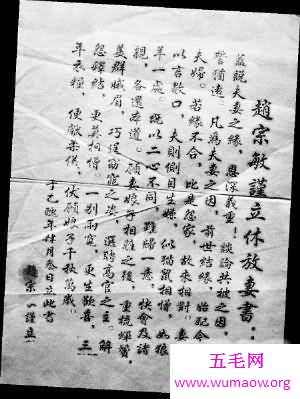 趙宗敏謹立休放妻書：
蓋說夫妻之緣，恩深義重！談論共被之因，
誓猶遠。凡為夫妻之因，前世結緣，始配今
夫婦。若緣不合，比是怨家，故來相對。妻
以言數口，夫則側目生嫌，似貓鼠相憎，如狼
羊一處。既以二心不同，難歸一意，快會及諸
親，各還本道。願妻娘子相離之後，重梳蟬鬢，
美裙娥眉，巧逞窈窕之姿，選聘高官之主。解
怨釋結，更莫相憎。一別兩寬，更生歡喜。三
年衣糧，便獻柔儀。伏願娘子千秋萬歲！
年 月叁日立此書
趙宗 謹立
五毛网
www.wumaow.org